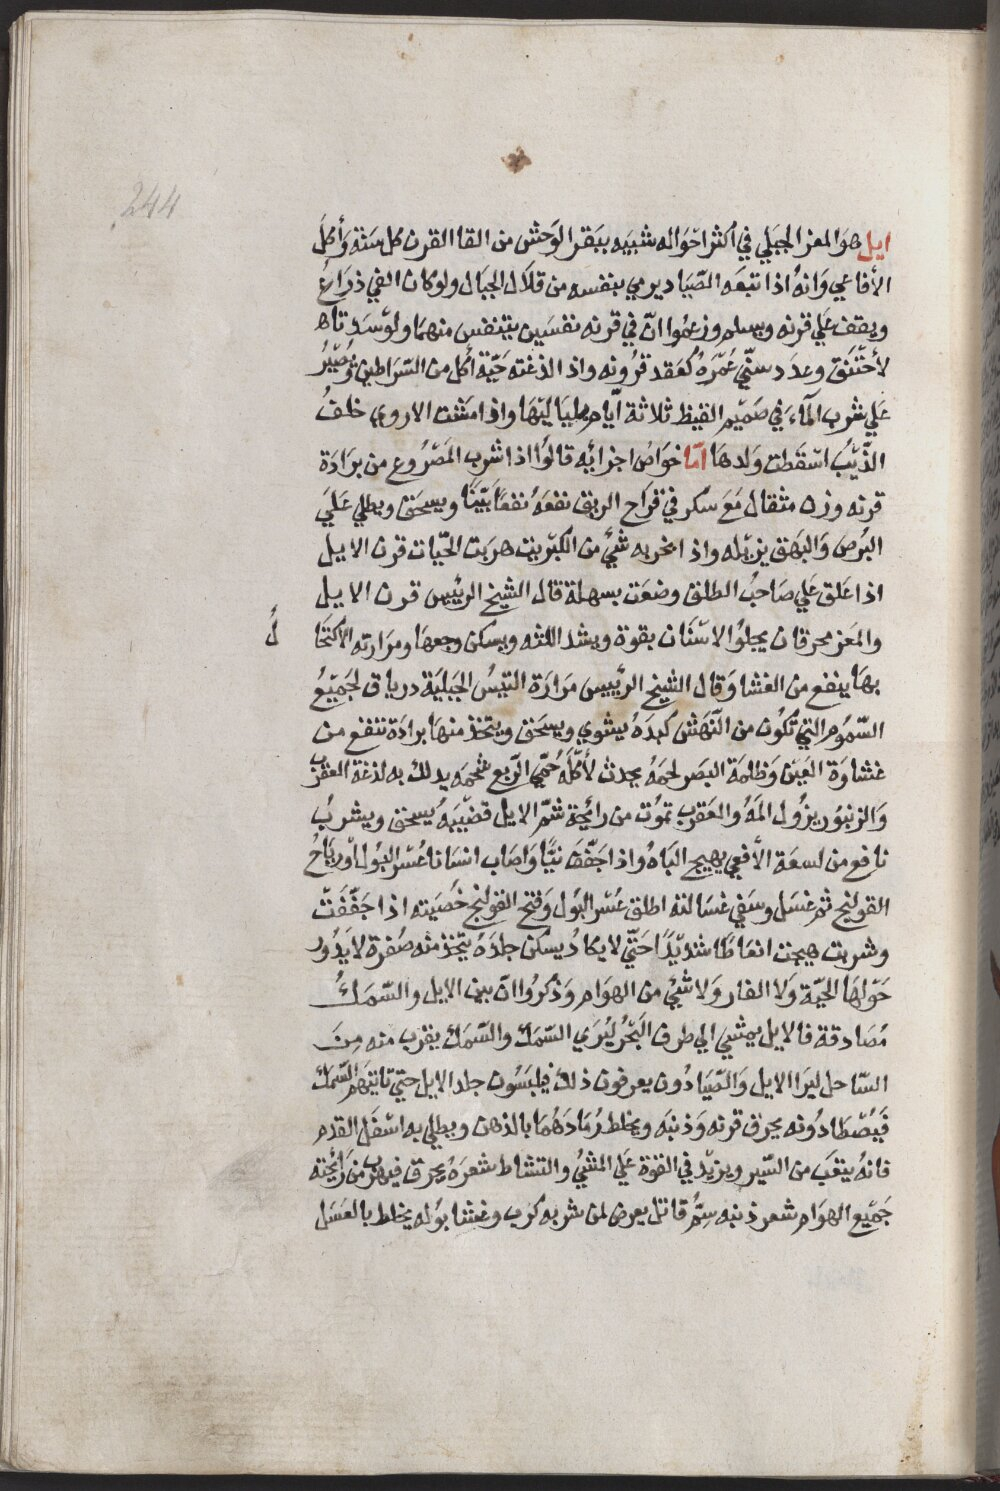 244
ايل هو المعز الجبلي في أكثر احواله شبيه ببقر الوحش من القا القرن كل سنة وأكل
الأفاعي وانه اذا تبعه الصياد يرمي بنفسه من قلال الجبال ولو كان الفي ذراع
ويقف علي قرنه ويسلم وزعموا ان في قرنه نفسين يتنفس منهما ولو سدتاه
لأختنق وعدد سني عمره كعقد قرونه واذا لذغته حية أكل من السراطين ويصير
علي شرب الماء في صميم القيظ ثلاثة أيام بلياليها واذا مشت الاروي خلف
الذيب اسقطت ولدها اما خواص اجزائه قالوا اذا شرب المصروع من برادة
قرنه وزن مثقال مع سكر في قراح الريق نفعه نفعا بينا ويسحق ويطلي علي
البرص والبهق يزيله واذا بخر به شئ من الكبريت هربت الحيات قرن الايل
اذا علق علي صاحب الطلق وضعت بسهلة قال الشيخ الرئيس قرن الايل
والمعز محرقان يجلو الاسنان بقوة ويشد اللثه ويسكن وجعها ومرارته الاكتحا
ل
بها ينفع من الغشا وقال الشيخ الرئيس مرارة التيس الجبلية درياق لجميع
السموم التي تكون من النهش كبده يشوي ويسحق ويتخذ منها برادة تنفع من
غشاوة العين وظلمة البصر لحمه يحدث لأكله حمي الربع شحمه يدلك به لذغة العقرب
والزنبور يزول المه والعقرب تموت من رائحة شم الايل قضيبه يسحق ويشرب
نافع من لسعة الأفعي يهيج الباه واذا جفف نيا واصاب انسانا عسر البول أو رياح
القولنج ثم غسل وسقي غسالته اطلق عسر البول وفتح القولنج خصيته اذا جففت
وشربت هيجت انعاظا شديدا حتي لا يكاد يسكن جلده يتخذ منه صفرة لا يدور
حولها الحية ولا الفار ولا شئ من الهوام وذكروا ان بين الايل والسمك
مصادقة فالايل يمشي الي طرف البحر ليري السمك والسمك يقرب منه من
الساحل ليرا الايل والصيادون يعرفون ذلك فيلبسون جلد الايل حتي تاتيهم السمك
فيصطادونه يحرق قرنه وذنبه ويخلط رمادهما بالدهن ويطلي به اسفل القدم
فانه يتعب من السير ويزيد في القوة علي المشي والنشاط شعره يحرق فيهرب من رائحته
جميع الهوام شعر ذنبه سم قاتل يعرض لمن شربه كرب وغشا بوله يخلط بالعسل